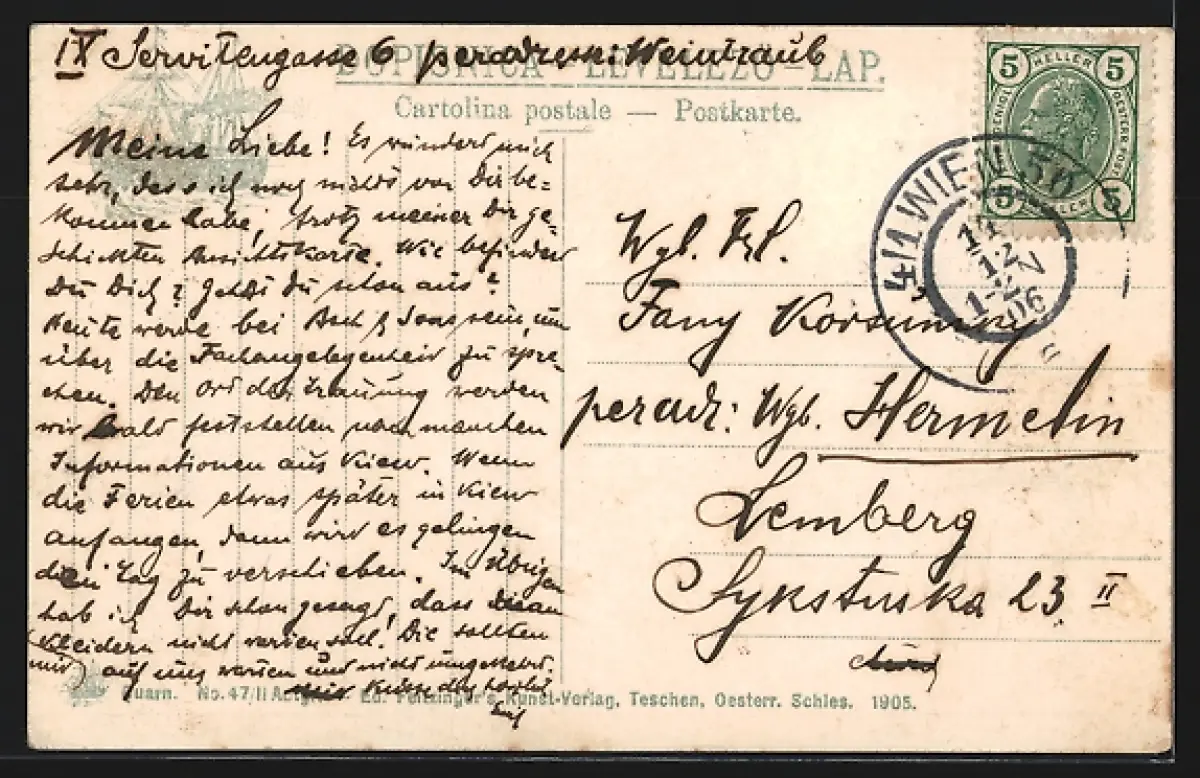 IX Servitengasse 6 peradresse: Weintraub
DOPISNICA – LEVELEZŐ–LAP.
Cartolina postale — Postkarte.
Meine Liebe! Es wundert mich
sehr, dass ich noch nichts von Dir be-
kommen habe, trotz meiner Dir ge-
schickten Ansichtskarte. Wie befindest
Du Dich? Gehst Du schon aus?
Heute werde bei sein, um
über die Fachangelegenheit zu spre-
chen. Den Ort der Trauung werden
wir bald feststellen nach manchen
Informationen aus Kiew. Wenn
die Ferien etwas später in Kiew
anfangen, dann wird es gelingen
den Tag zu verschieben. Im Übrigen
hab ich Dir schon gesagt, dass an
Kleidern nicht warten soll! Die sollten
(nur) auf uns warten und nicht umgekehrt.
Küsse dich herzlich
Emil
5 HELLER 5
5 HELLER 5
4/1 WIEN 50
11
12
1-2N
06
Wgl. Frl.
Fany
peradr: Wgb. Hermelin
Lemberg
Sykstuska 23 II
Quarn. No. 47/II Ed. Feitzinger's Kunst-Verlag, Teschen, Oesterr. Schles. 1905.